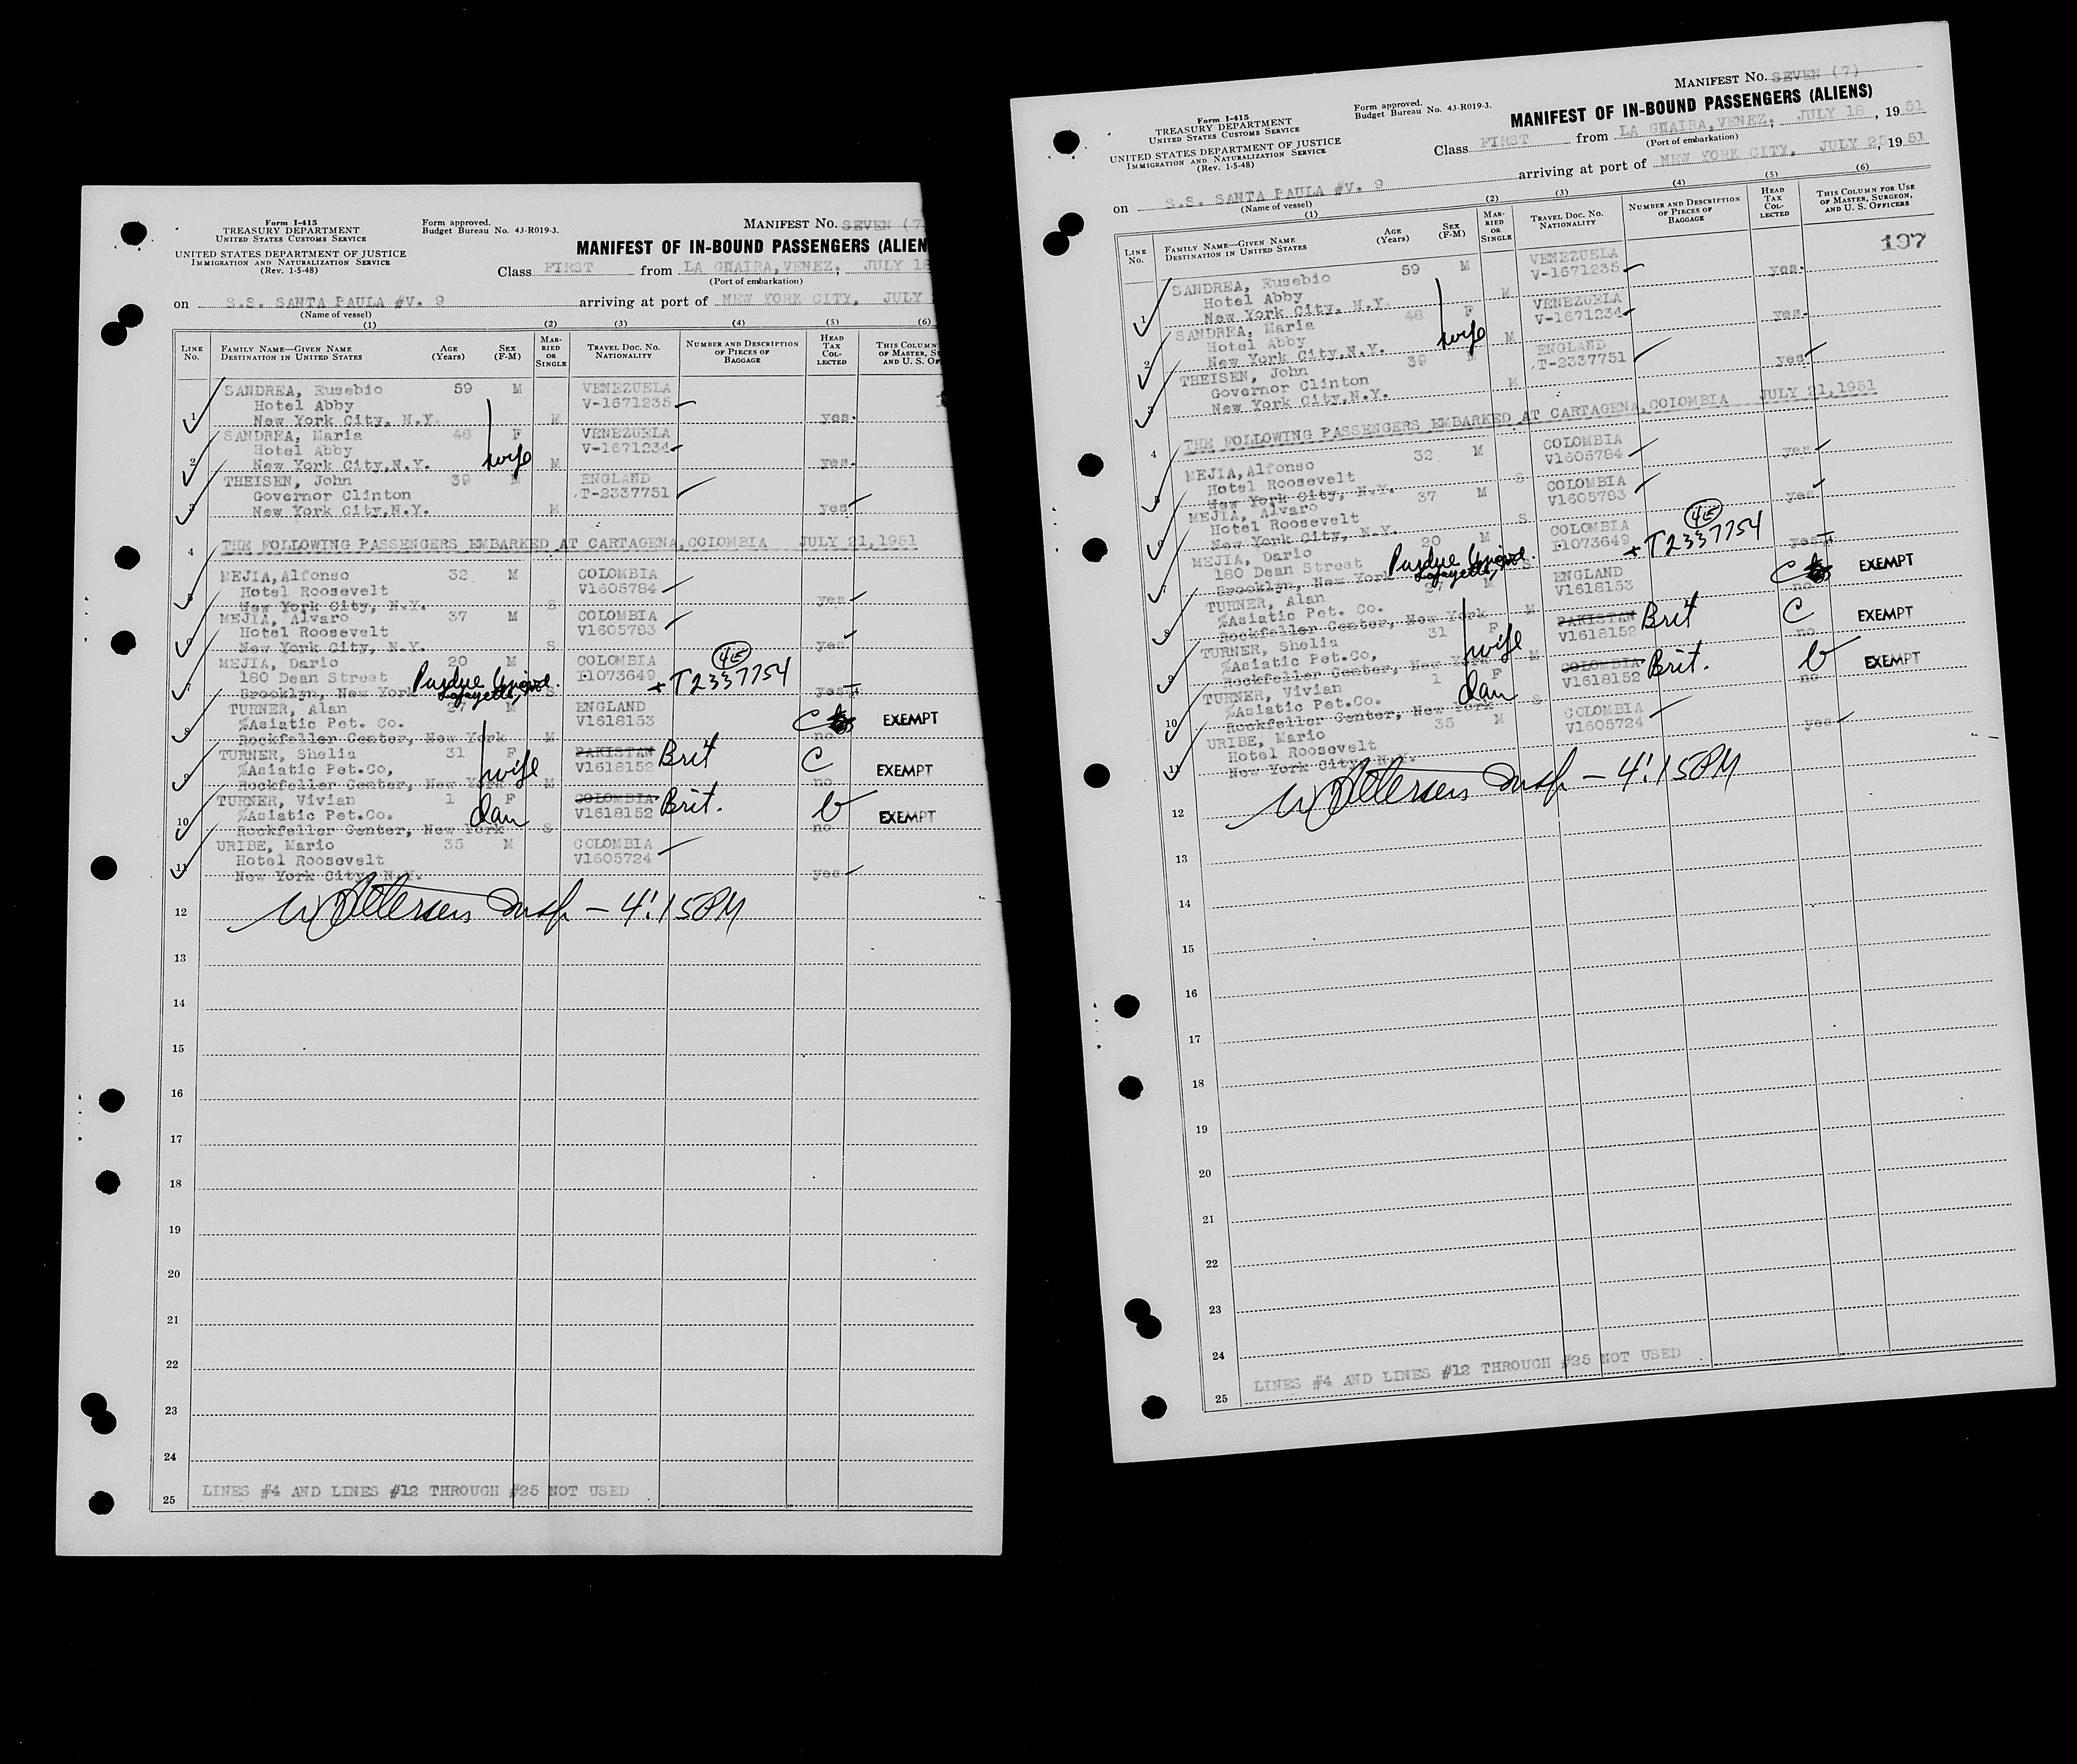 Form I-415
TREASURY DEPARTMENT
UNITED STATES CUSTOMS SERVICE
UNITED STATES DEPARTMENT OF JUSTICE
IMMIGRATION AND NATURALIZATION SERVICE
(Rev. 1-5-48)
Form approved.
Budget Bureau No. 43-R019-3.
MANIFEST No. SEVEN (7
MANIFEST OF IN-BOUND PASSENGERS (ALIEN
Class FIRST from LA GUAIRA, VENEZ. JULY 18
(Port of embarkation)
on S.S. SANTA PAULA #V. 9 arriving at port of NEW YORK CITY, JULY
(Name of vessel)
(1) (2) (3) (4) (5) (6)
LINE No. FAMILY NAME—GIVEN NAME DESTINATION IN UNITED STATES AGE (Years) SEX (F-M) MARRIED OR SINGLE TRAVEL DOC. NO. NATIONALITY NUMBER AND DESCRIPTION OF PIECES OF BAGGAGE HEAD TAX COLLECTED THIS COLUMN OF MASTER, SU AND U. S. OF
SANDREA, Eusebio 59 M VENEZUELA
Hotel Abby V-1671235
1 New York City, N.Y. M yes
SANDREA, Maria 48 F VENEZUELA
Hotel Abby wife V-1671234
2 New York City,N.Y. M yes
THEISEN, John 39 M ENGLAND
Governor Clinton T-2337751
3 New York City,N.Y. M yes
4 THE FOLLOWING PASSENGERS EMBARKED AT CARTAGENA,COLOMBIA JULY 21,1951
MEJIA,Alfonso 32 M COLOMBIA
Hotel Roosevelt V1605784
5 New York City, N.Y. S yes
MEJIA, Alvaro 37 M COLOMBIA
Hotel Roosevelt V1605783
6 New York City, N.Y. S yes
MEJIA, Dario 20 M COLOMBIA 4E
180 Dean Street Purdue Univ. I1073649 T2337754
7 Brooklyn, New York Lafayette, S yes
TURNER, Alan 27 M ENGLAND
%Asiatic Pet. Co. V1618153 C EXEMPT
8 Rockfeller Center, New York M no
TURNER, Shelia 31 F PAKISTAN Brit
%Asiatic Pet.Co, wife V1618152 C EXEMPT
9 Rockfeller Center, New York M no
TURNER, Vivian 1 F COLOMBIA Brit.
%Asiatic Pet.Co. dau V1618152 b EXEMPT
10 Rockfeller Center, New York S no
URIBE, Mario 35 M COLOMBIA
Hotel Roosevelt V1605724
11 New York City, N.Y. yes
12 Insp - 4:15PM
13
14
15
16
17
18
19
20
21
22
23
24
25 LINES #4 AND LINES #12 THROUGH #25 NOT USED
Form I-415
TREASURY DEPARTMENT
UNITED STATES CUSTOMS SERVICE
UNITED STATES DEPARTMENT OF JUSTICE
IMMIGRATION AND NATURALIZATION SERVICE
(Rev. 1-5-48)
Form approved.
Budget Bureau No. 43-R019-3.
MANIFEST No. SEVEN (7)
MANIFEST OF IN-BOUND PASSENGERS (ALIENS)
Class FIRST from LA GUAIRA, VENEZ. JULY 18, 1951
(Port of embarkation)
on S.S. SANTA PAULA #V. 9 arriving at port of NEW YORK CITY, JULY 25, 1951
(Name of vessel)
(1) (2) (3) (4) (5) (6)
LINE No. FAMILY NAME—GIVEN NAME DESTINATION IN UNITED STATES AGE (Years) SEX (F-M) MARRIED OR SINGLE TRAVEL DOC. NO. NATIONALITY NUMBER AND DESCRIPTION OF PIECES OF BAGGAGE HEAD TAX COLLECTED THIS COLUMN FOR USE OF MASTER, SURGEON, AND U. S. OFFICERS
197
SANDREA, Eusebio 59 M VENEZUELA
Hotel Abby V-1671235
1 New York City, N.Y. M yes
SANDREA, Maria 48 F VENEZUELA
Hotel Abby wife V-1671234
2 New York City,N.Y. M yes
THEISEN, John 39 M ENGLAND
Governor Clinton T-2337751
3 New York City,N.Y. M yes
4 THE FOLLOWING PASSENGERS EMBARKED AT CARTAGENA,COLOMBIA JULY 21,1951
MEJIA,Alfonso 32 M COLOMBIA
Hotel Roosevelt V1605784
5 New York City, N.Y. S yes
MEJIA, Alvaro 37 M COLOMBIA
Hotel Roosevelt V1605783
6 New York City, N.Y. S yes
MEJIA, Dario 20 M COLOMBIA 4E
180 Dean Street Purdue Univ. I1073649 T2337754
7 Brooklyn, New York Lafayette, S yes
TURNER, Alan 27 M ENGLAND
%Asiatic Pet. Co. V1618153 C EXEMPT
8 Rockfeller Center, New York M no
TURNER, Shelia 31 F PAKISTAN Brit
%Asiatic Pet.Co, wife V1618152 C EXEMPT
9 Rockfeller Center, New York M no
TURNER, Vivian 1 F COLOMBIA Brit.
%Asiatic Pet.Co. dau V1618152 b EXEMPT
10 Rockfeller Center, New York S no
URIBE, Mario 35 M COLOMBIA
Hotel Roosevelt V1605724
11 New York City, N.Y. yes
12 Insp - 4:15PM
13
14
15
16
17
18
19
20
21
22
23
24
25 LINES #4 AND LINES #12 THROUGH #25 NOT USED